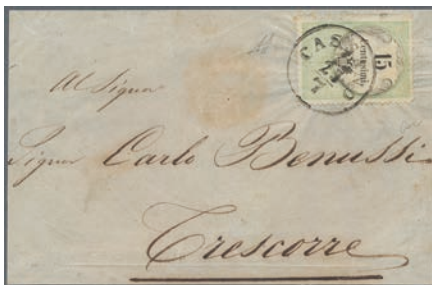 15
Centesimi
Al Signor
Signor Carlo Benussi
Trescorre